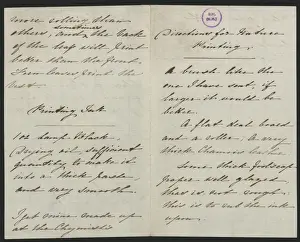 more cotting than
others, and sometimes the back
of the leaf will print
better than the front.
Fern leaves print the
best.
Printing Ink
1 oz Lamp black
Drying oil, sufficient
quantity, to make it
into a thick paste
and very smooth.
I get mine made up
at the Chymists
Directions for Nature
Printing.
A brush like the
one I have sent, if
larger it would be
better.
A flat deal board
and a roller. A very
thick
Some thick foolscap
paper well glazed
that is not rough.
this is to put the ink
upon.